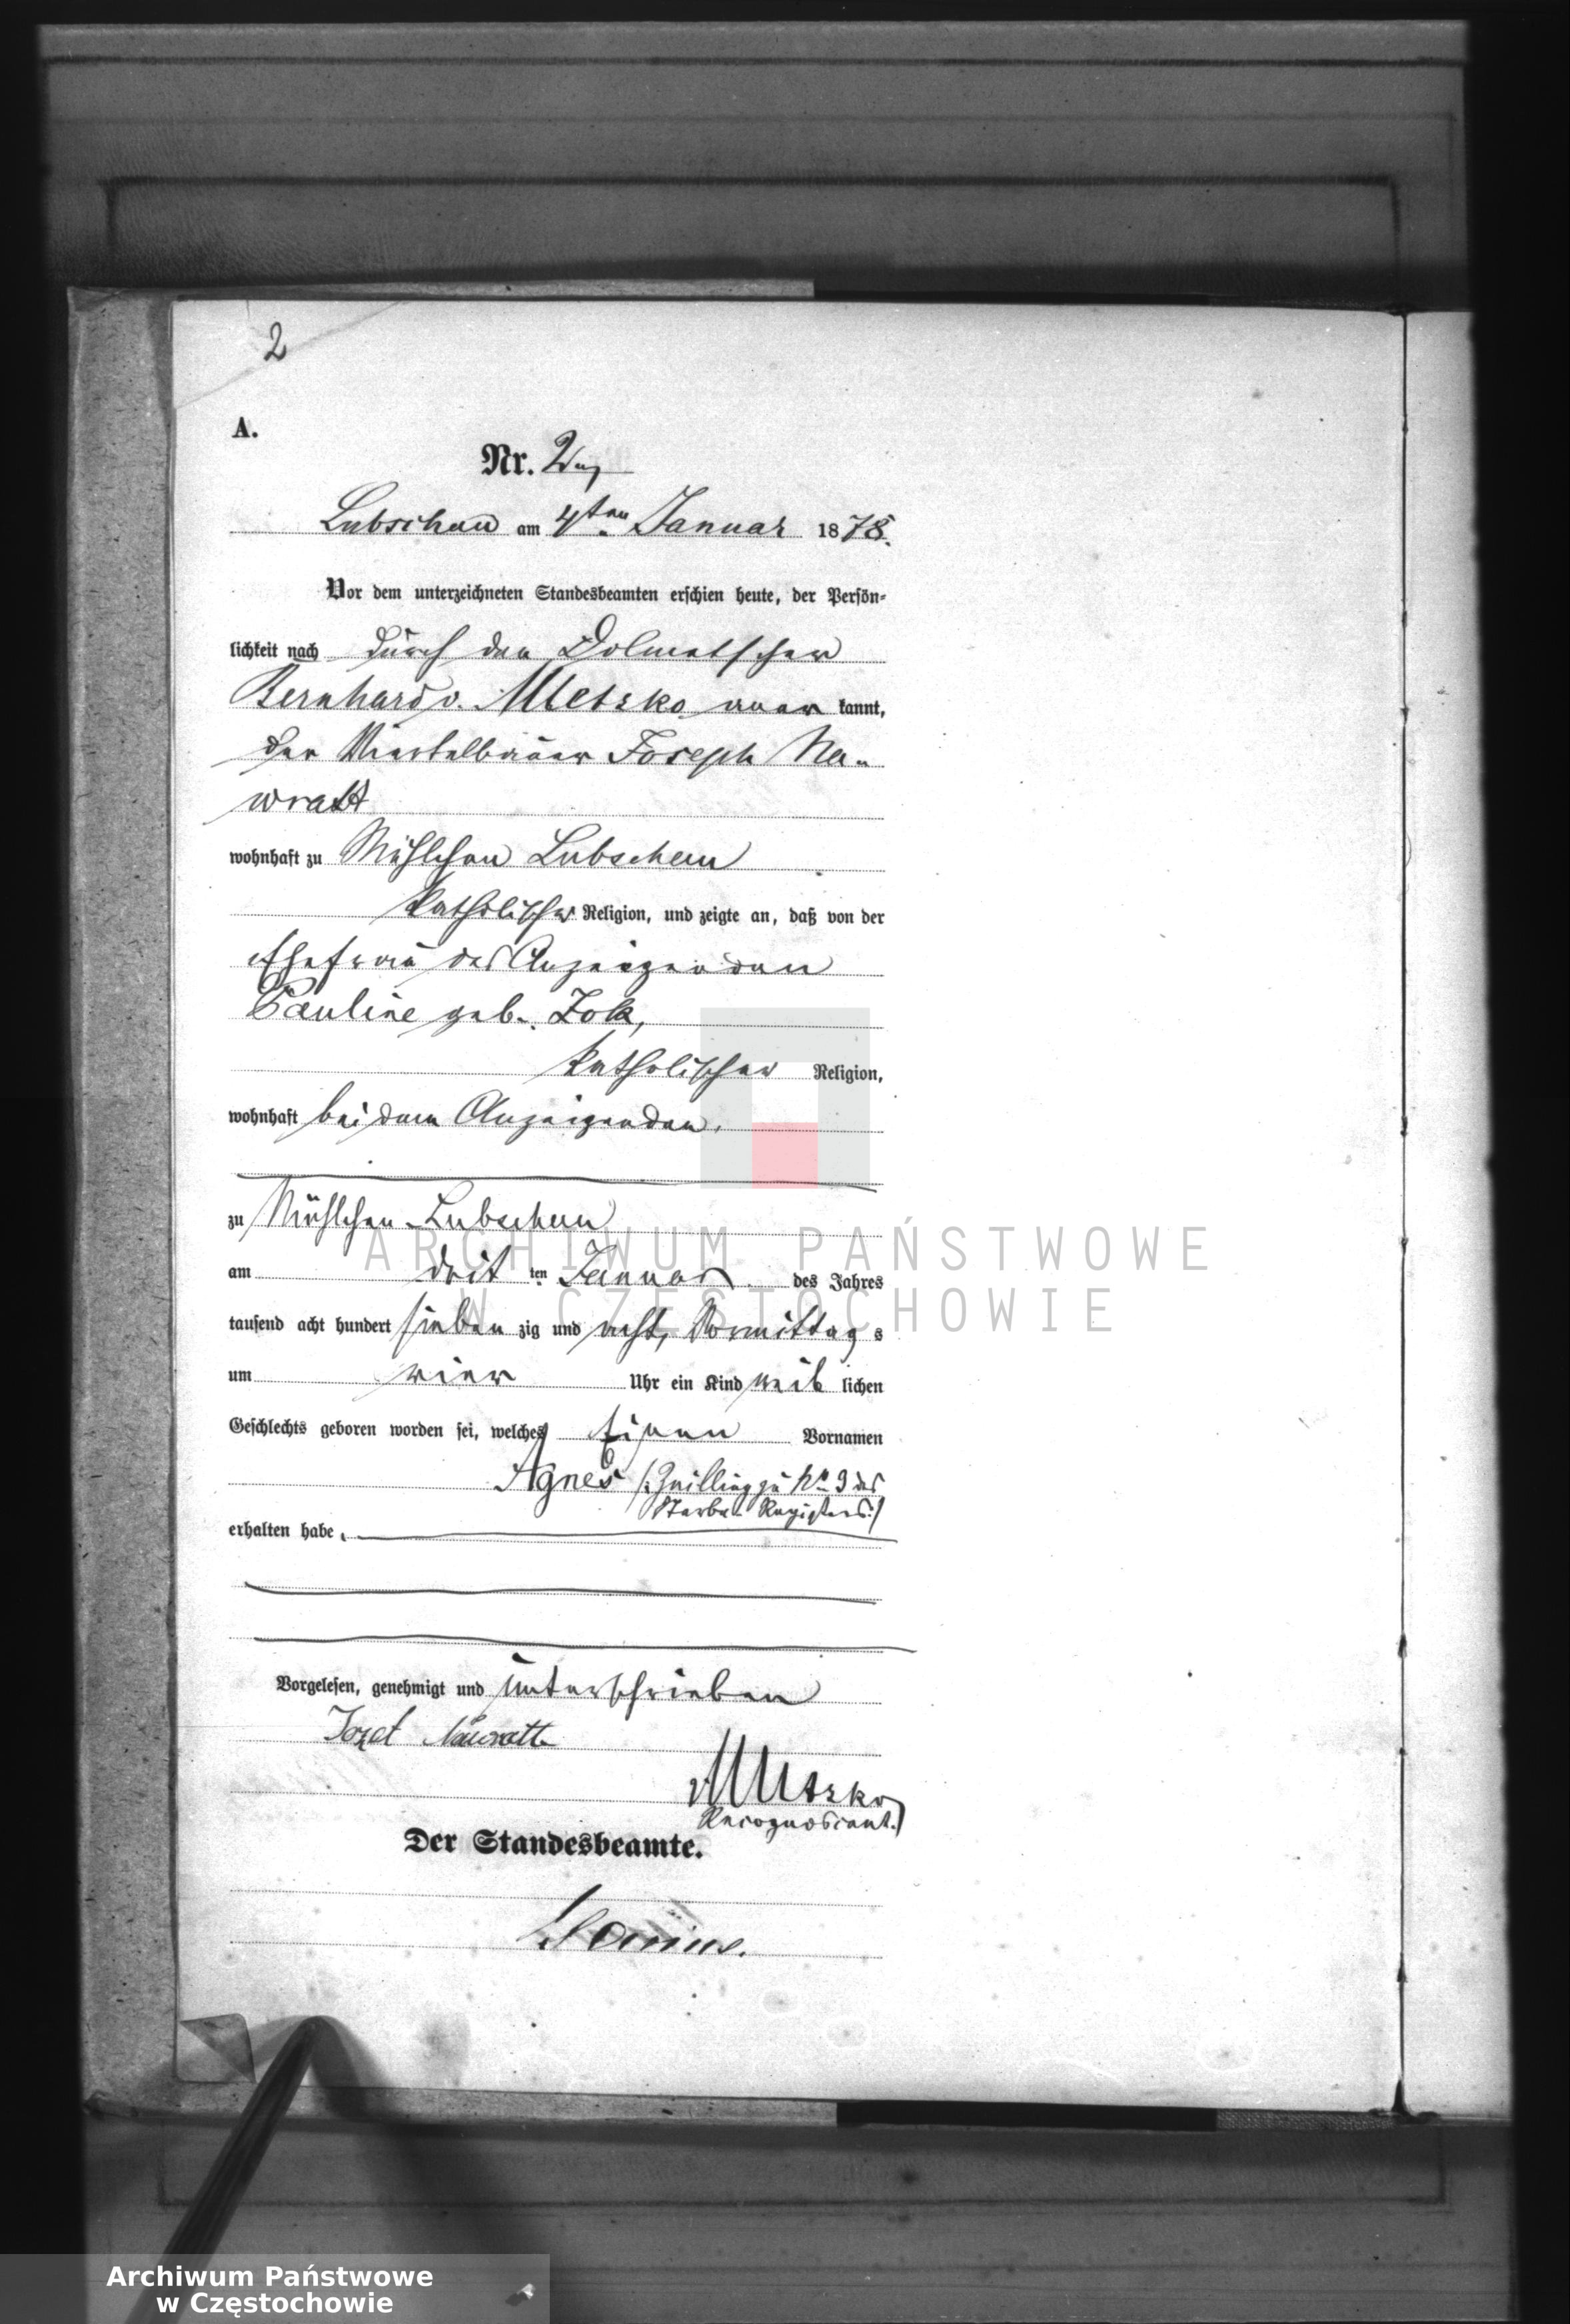 2
A.
Nr. 2
Lubschau am 4ten Januar 1878.
Vor dem unterzeichneten Standesbeamten erschien heute, der Persön-
lichkeit nach durch den Dolmetscher
Bernhard v. Mletzko aner kannt,
der Viertelbauer Joseph Na-
wratt
wohnhaft zu Mühlchen Lubschau
katholischer Religion, und zeigte an, daß von der
Ehefrau des Anzeigenden
Pauline geb. Zok,
katholischer Religion,
wohnhaft bei dem Anzeigenden.
zu Mühlchen-Lubschau
am dritten Januar des Jahres
tausend acht hundert siebenzig und acht, Vormittags
um vier Uhr ein Kind weiblichen
Geschlechts geboren worden sei, welches Vornamen
Agnes /: Zwilling zu No 3 des
Sterbe-Registers :/
erhalten habe.
Vorgelesen, genehmigt und unterschrieben
Jozef Nawratt
v Mletzko
Recognoscent.)
Der Standesbeamte.
ARCHIWUM PAŃSTWOWE
W CZĘSTOCHOWIE
Archiwum Państwowe
w Częstochowie